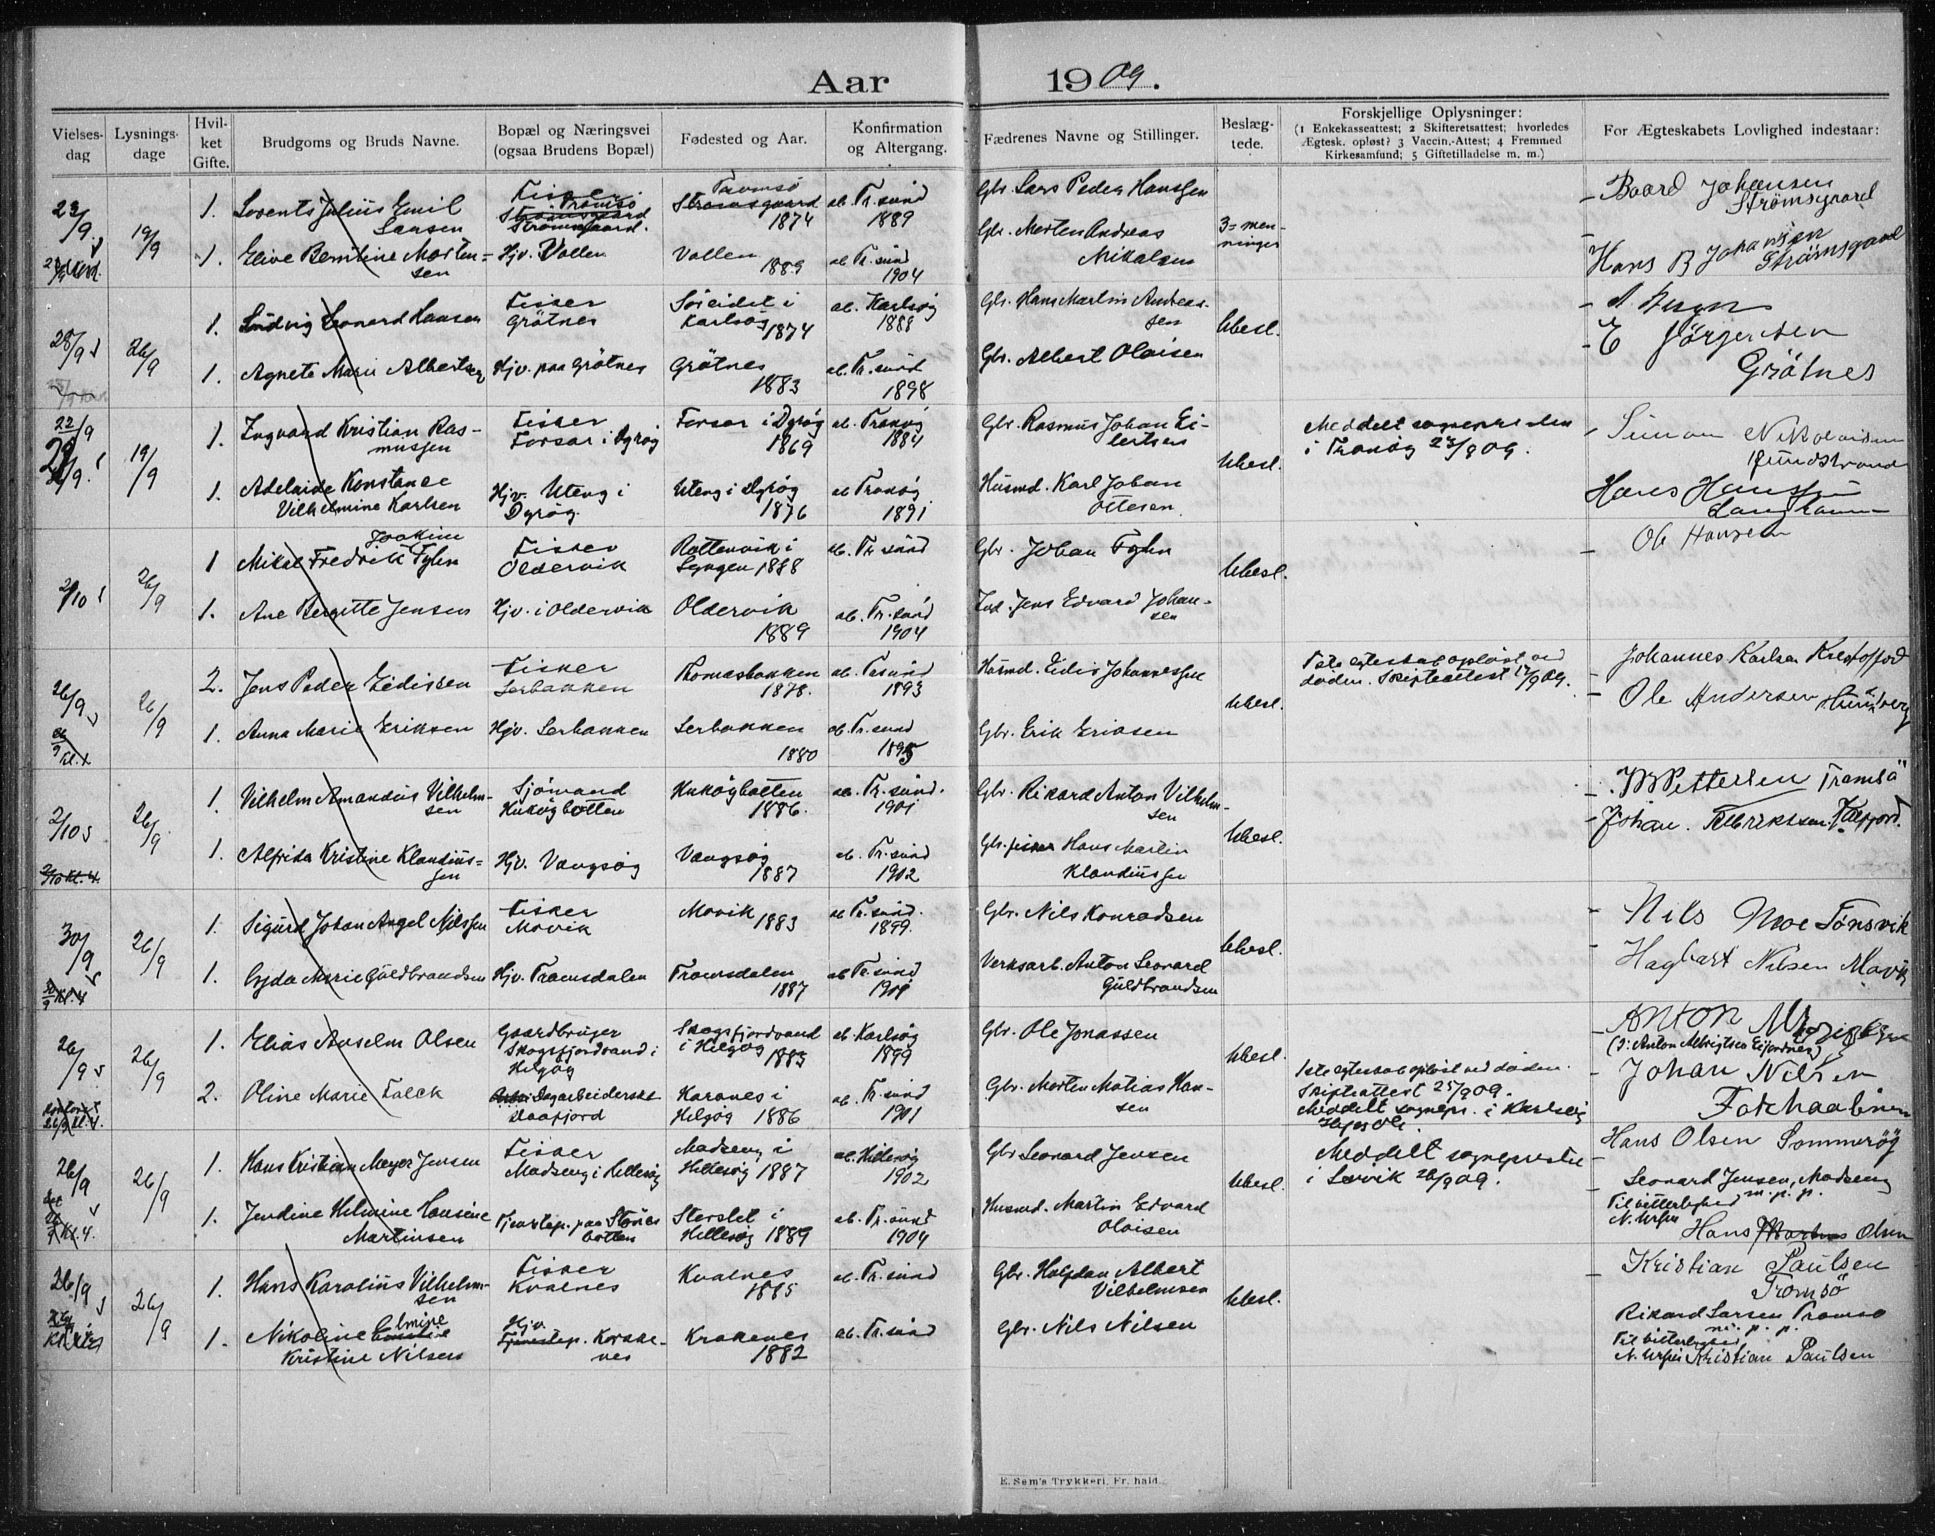 Aar 1909.
Vielses-dag
Lysnings-dage
Hvil-ket Gifte.
Brudgoms og Bruds Navne.
Bopæl og Næringsvei (ogsaa Brudens Bopæl)
Fødested og Aar.
Konfirmation og Altergang.
Fædrenes Navne og Stillinger.
Beslæg-tede.
Forskjellige Oplysninger:
(1 Enkekasseattest; 2 Skifteretsattest; hvorledes Ægtesk. opløst? 3 Vaccin.-Attest; 4 Fremmed Kirkesamfund; 5 Giftetilladelse m. m.)
For Ægteskabets Lovlighed indestaar:
23/9 19/9 1. Lorents Julius Emil Larsen Fisker Tromsö Strømsgaard Tromsö 1874 ab Tr.sund 1889 Gbr. Lars Peder Hanssen 3-men-ninger Baard Johansen Strømsgaard
1. Elive Berntine Morten-sen Hjv. Vollen Vollen 1889 ab Tr.sund 1904 Gbr. Morten Andreas Mikalsen Hans B Johansen Strømsgaard
28/9 26/9 1. Ludvig Leonard Hansen Fisker Grötnes Söreidet i Karlsöy 1874 ab. Karlsöy 1888 Gbr. Hans Martin Andreas-sen Ubesl.
1. Agnete Marie Albertsen Hjv. paa Grötnes Grötnes 1883 ab. Tr.sund 1898 Gbr. Albert Olaisen E Jørgensen Grötnes
22/9 19/9 1. Ingvard Kristian Ras-mussen Fisker Forsar i Dyröy Forsar i Dyröy 1869 ab. Tranöy 1884 Gbr. Rasmus Johan Ei-lertsen Ubesl. Meddelt sognepresten i Tranöy 23/9 09. Simon Nikolaisen
1. Adelaide Konstance Vilhelmine Karlsen Hjv. Uteng i Dyröy Uteng i Dyröy 1876 ab Tranöy 1891 Husmd. Karl Johan Ottesen Hans Hanssen
2/10 26/9 1 Mikal Fredrik Joakim Fyhn Fisker Oldervik Rottenvik i Lyngen 1888 ab. Tr.sund Gbr. Johan Fyhn Ubesl. Ole Hansen
1. Ane Bergitte Jensen Hjv. i Oldervik Oldervik 1889 ab. Tr.sund 1904 Ind. Jens Edvard Johan-sen
26/9 26/9 2. Jens Peder Eidissen Fisker Lerbakken Tromsbakken 1878. ab. Tr.sund 1893 Husmd. Eidis Johannessen Ubesl. 1ste egteskab oplöst ved döden. Skifteattest 17/9 09. Johannes Karlsen
1. Anna Marie Eriksen Hjv. Lerbakken Lerbakken 1880 ab. Tr.sund 1895 Gbr. Erik Eriksen Ole Andersen
2/10 26/9 1. Vilhelm Amandus Vilhelm-sen Sjömand Kuköybotten Kuköybotten 1886. ab. Tr.sund. 1901 Gbr. Rikard Anton Vilhelm-sen Ubesl. Pettersen Tromsö
1. Alfrida Kristine Klaudius-sen Hjv. Vengsöy Vengsöy 1887 ab. Tr.sund 1902 Gbr. fisker Hans Martin Klaudiussen Johan. Kalfjord.
30/9 26/9 1. Sigurd Johan Angel Nilssen Fisker Movik Movik 1883 ab Tr.sund. 1899. Gbr. Nils Konradsen Ubesl. Nils Moe Tønsvik
1. Gyda Marie Guldbrandsen Hjv. Tromsdalen Tromsdalen 1887 ab Tr.sund 1901 Verksarb. Anton Leonard Guldbrandsen Hagbart Nilsen Movik
26/9 26/9 1. Elias Anselm Olsen Gaardbruger Skogsfjordvand i Helgöy Skogsfjordvand i Helgöy 1883 ab Karlsöy 1899 Gbr. Ole Jonassen Ubesl. Anton (: Anton Albrigtsen
2. Oline Marie Falck Dagarbeiderske Daafjord Karanes i Helgöy 1886 ab. Tr.sund 1901 Gbr. Morten Matias Han-sen 1ste egteskab oplöst ved döden. Skifteattest 25/9 09. Meddelt sognepr. i Karlsöy Johan Nilsen
26/9 26/9 1. Hans Kristian Meyer Jensen Fisker Madseng i Hillesöy Madseng i Hillesöy 1887 ab. Hillesöy 1902 Gbr Leonard Jensen Ubesl. Meddelt sognepresten i Lenvik 26/9 09. Hans Olsen Sommeröy
Leonard Jensen, Madseng m. p. p. Til vitterlighed
1. Jendine Helmine Hansine Martinsen Tjenstep. paa Storslet i Hillesöy 1889 ab. Tr.sund 1904 Husmd. Martin Edvard Olaisen Hans Olsen
26/9 26/9 1. Hans Karolius Vilhelm-sen Fisker Kvalnes Kvalnes 1885 ab. Tr.sund Gbr. Halfdan Albert Vilhelmsen Ubesl. Kristian Paulsen Tromsö
1. Nikoline Elmine Kristine Nilsen Hjv. Tjenstep. Kraknes 1882 ab. Tr.sund Gbr. Nils Nilsen Rikard Larsen Tromsö m. p. p. Til vitterlighed Kristian Paulsen
E. Sem's Trykkeri, Fr. hald.